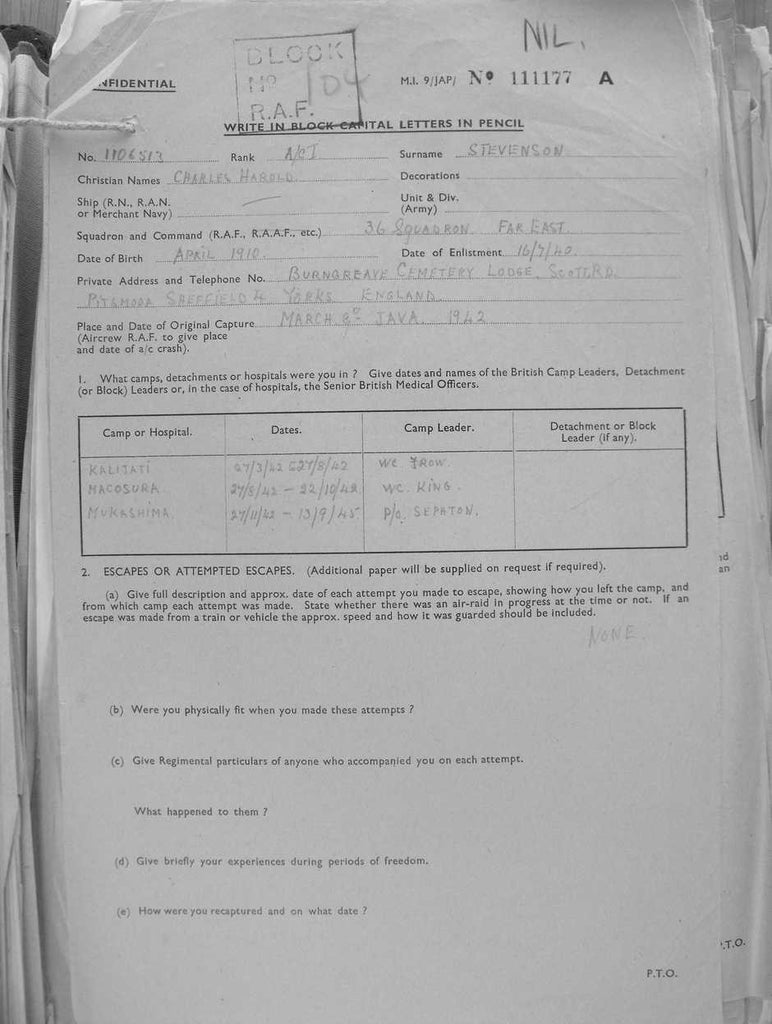 NIL.
BLOCK
Nº 104
R.A.F.
NFIDENTIAL
M.I. 9/JAP/ Nº 111177 A
WRITE IN BLOCK CAPITAL LETTERS IN PENCIL
No. 1106513 Rank A/C I Surname STEVENSON
Christian Names CHARLES HAROLD Decorations
Ship (R.N., R.A.N. or Merchant Navy) Unit & Div. (Army)
Squadron and Command (R.A.F., R.A.A.F., etc.) 36 SQUADRON FAR EAST
Date of Birth APRIL 1910 Date of Enlistment 16/7/40
Private Address and Telephone No. BURNGREAVE CEMETERY LODGE, SCOTT RD.
PITSMOOR SHEFFIELD 4 YORKS ENGLAND
Place and Date of Original Capture MARCH 8TH JAVA 1942
(Aircrew R.A.F. to give place
and date of a/c crash).
1. What camps, detachments or hospitals were you in ? Give dates and names of the British Camp Leaders, Detachment
(or Block) Leaders or, in the case of hospitals, the Senior British Medical Officers.
Camp or Hospital. Dates. Camp Leader. Detachment or Block Leader (if any).
KALIJATI 27/3/42 27/8/42 WC FROW
MACOSURA 27/8/42 – 22/10/42 WC KING.
MUKASHIMA 27/11/42 – 13/9/45 P/O SEPHTON.
2. ESCAPES OR ATTEMPTED ESCAPES. (Additional paper will be supplied on request if required).
(a) Give full description and approx. date of each attempt you made to escape, showing how you left the camp, and
from which camp each attempt was made. State whether there was an air-raid in progress at the time or not. If an
escape was made from a train or vehicle the approx. speed and how it was guarded should be included.
NONE.
(b) Were you physically fit when you made these attempts ?
(c) Give Regimental particulars of anyone who accompanied you on each attempt.
What happened to them ?
(d) Give briefly your experiences during periods of freedom.
(e) How were you recaptured and on what date ?
P.T.O.
.T.O.